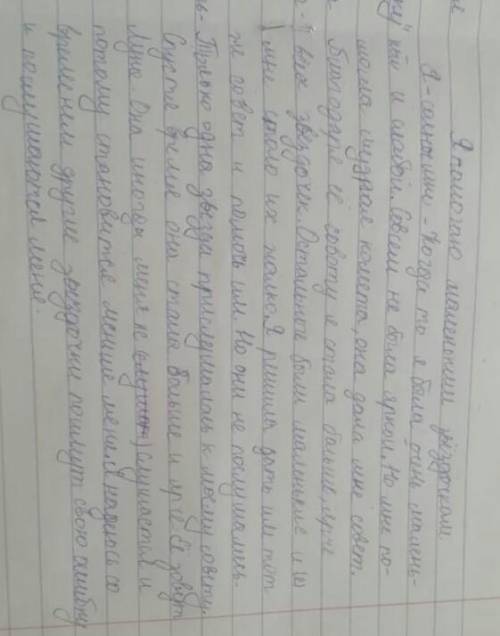 Я помогаю маленьким звёздочкам.
Я - солнышко - Когда то я была очень малень-
кой и слабой. Совсем не была яркой. Но мне по-
могла мудрая комета, она дала мне совет.
Благодаря её совету я стала больше, ярче
звёздочек. Остальные были маленькие и
мне стало их жалко. Я решила дать им тот
же совет и помочь им. Но они не послушались.
Только одна звезда прислушалась к моему совету.
Спустя время она стала больше и ярче. Её зовут
Луна. Она иногда меня не слушается и
потому становится меньше. Я надеюсь со
временем другие звёздочки поймут свою ошибку
и послушаются меня.